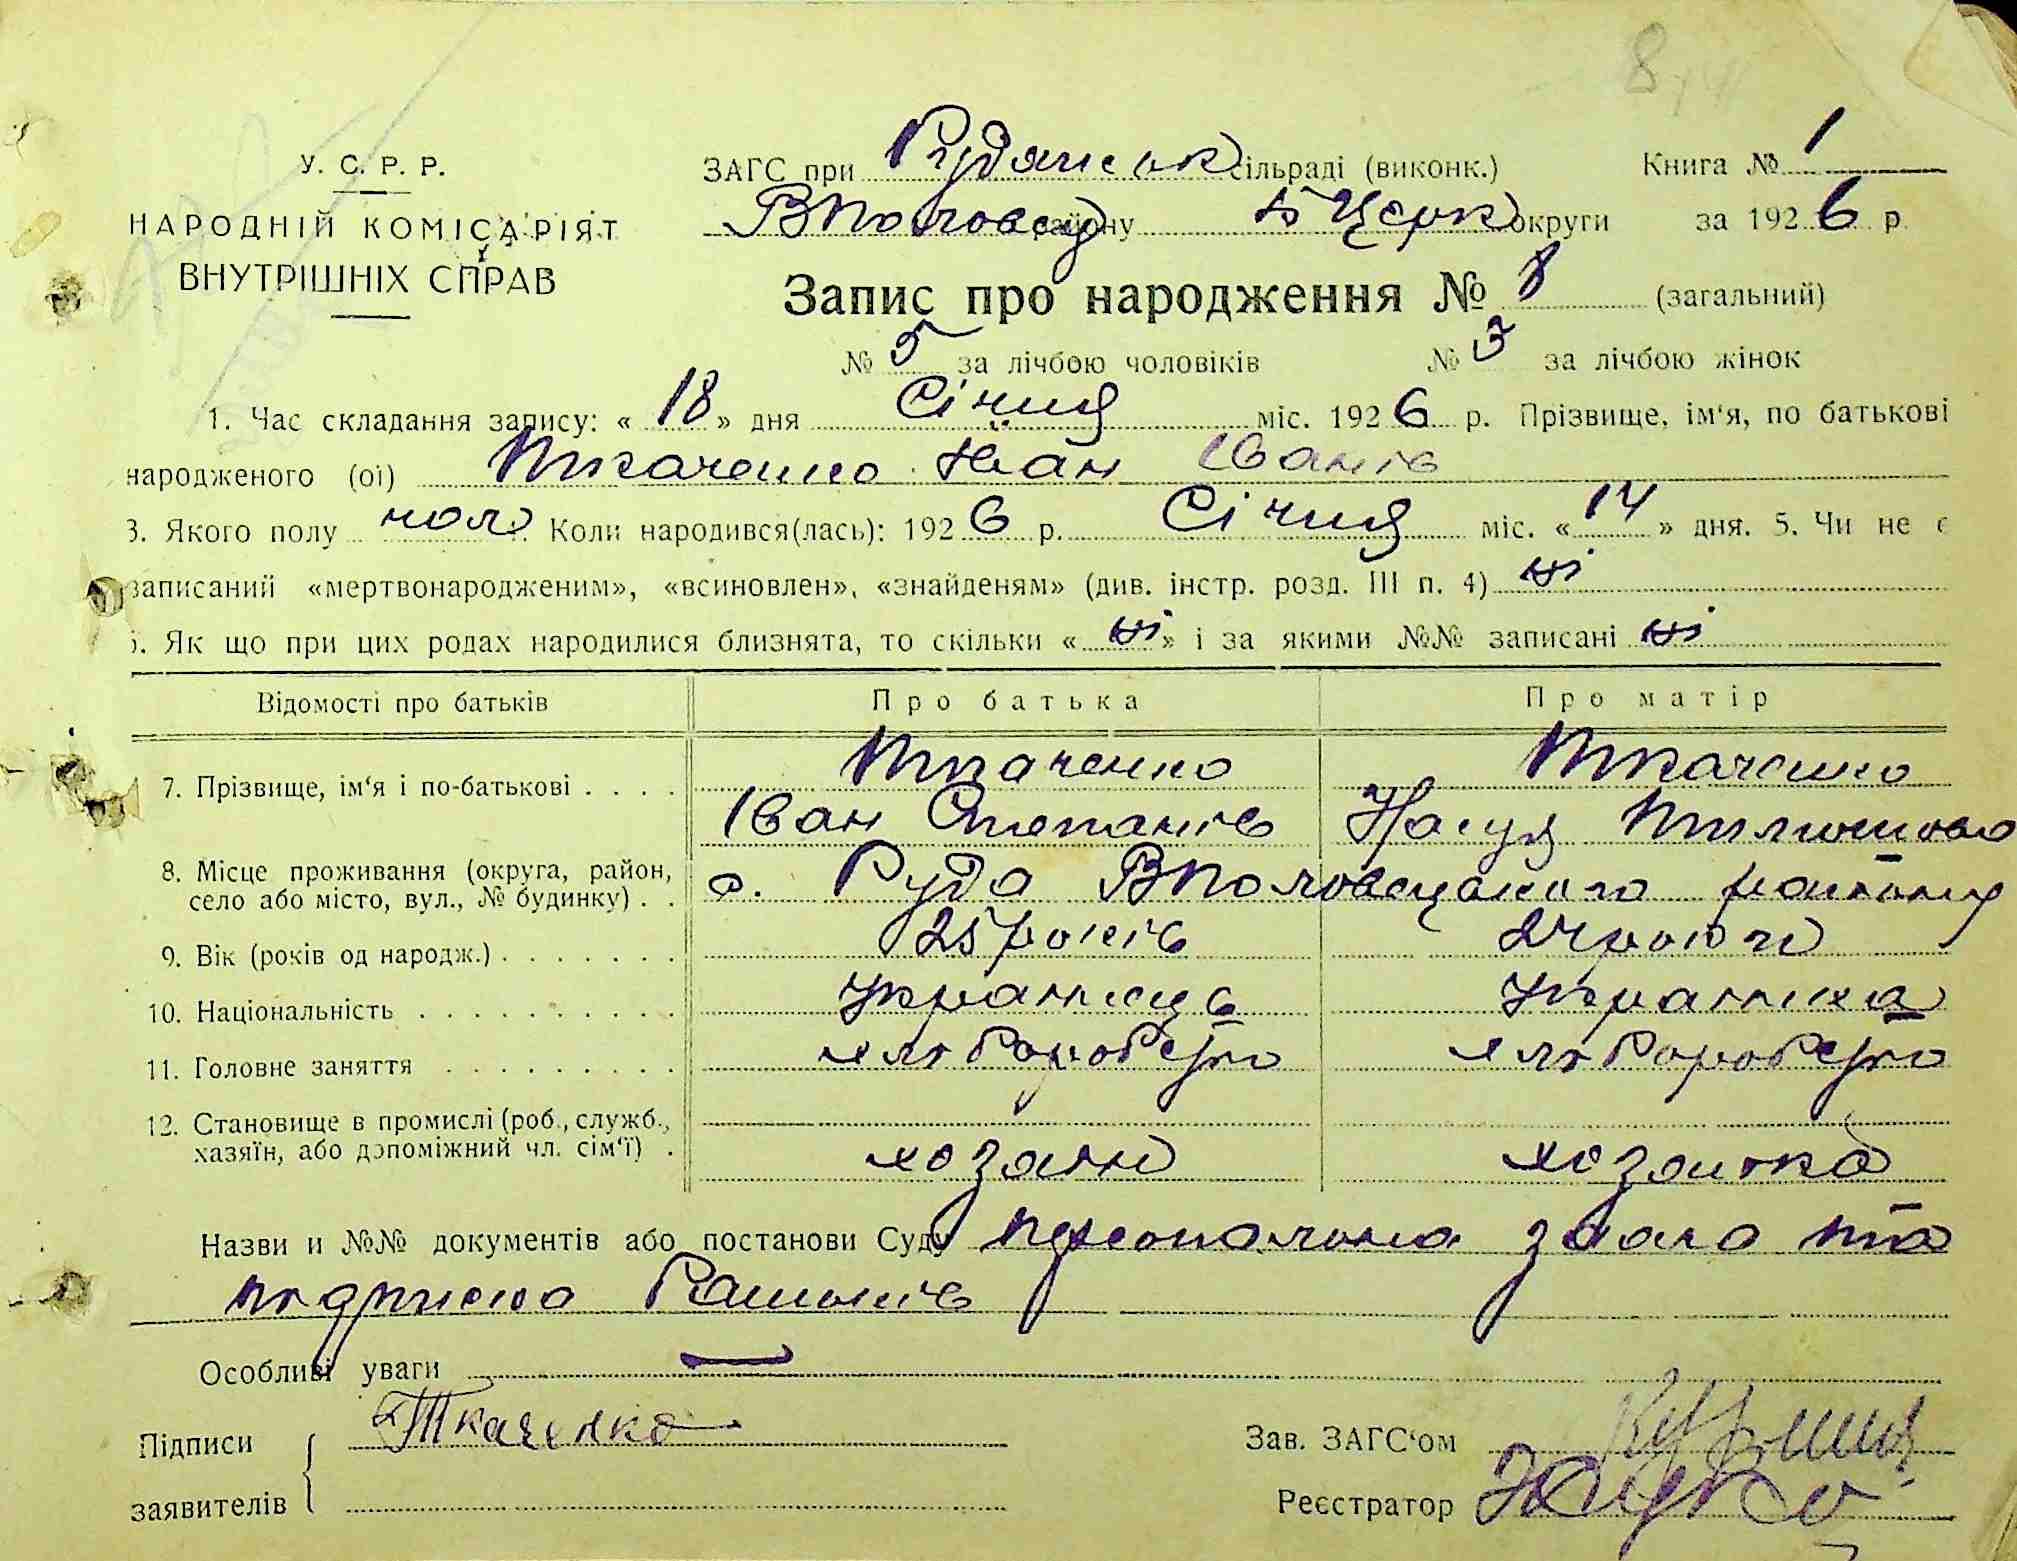 У. С. Р. Р.
НАРОДНІЙ КОМІСАРІЯТ
ВНУТРІШНІХ СПРАВ
ЗАГС при Рудянськ сільраді (виконк.) Книга № 1
ВПоловец району БЦерк округи за 1926 р.
Запис про народження № 8 (загальний)
№ 5 за лічбою чоловіків № 3 за лічбою жінок
1. Час складання запису: « 18 » дня Січня міс. 1926 р. Прізвище, ім'я, по батькові
народженого (ої) Ткаченко Іван Іванів
3. Якого полу чол. Коли народився(лась): 1926 р. Січня міс. «14» дня. 5. Чи не є
записаний «мертвонародженим», «всиновлен», «знайденям» (див. інстр. розд. III п. 4) ні
6. Як що при цих родах народилися близнята, то скільки « ні » і за якими №№ записані ні
Відомості про батьків Про батька Про матір
7. Прізвище, ім'я і по-батькові . . . . Ткаченко Ткаченко
Іван Степанів Настя
8. Місце проживання (округа, район,
село або місто, вул., № будинку) . . с. Руда ВПоловецького району
9. Вік (років од народж.) . . . . . . . 25 років 24 роки
10. Національність . . . . . . . . . . українець українка
11. Головне заняття . . . . . . . . . хліборобство хліборобство
12. Становище в промислі (роб., служб.,
хазяїн, або допоміжний чл. сім'ї) . хозяін хозяйка
Назви и №№ документів або постанови Суду персональна заява та
підписка батьків
Особливі уваги —
Підписи Ткаченко Зав. ЗАГС'ом
заявителів Реєстратор